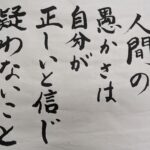 人間の
愚かさは
自分が
正しいと信じ
疑わないこと